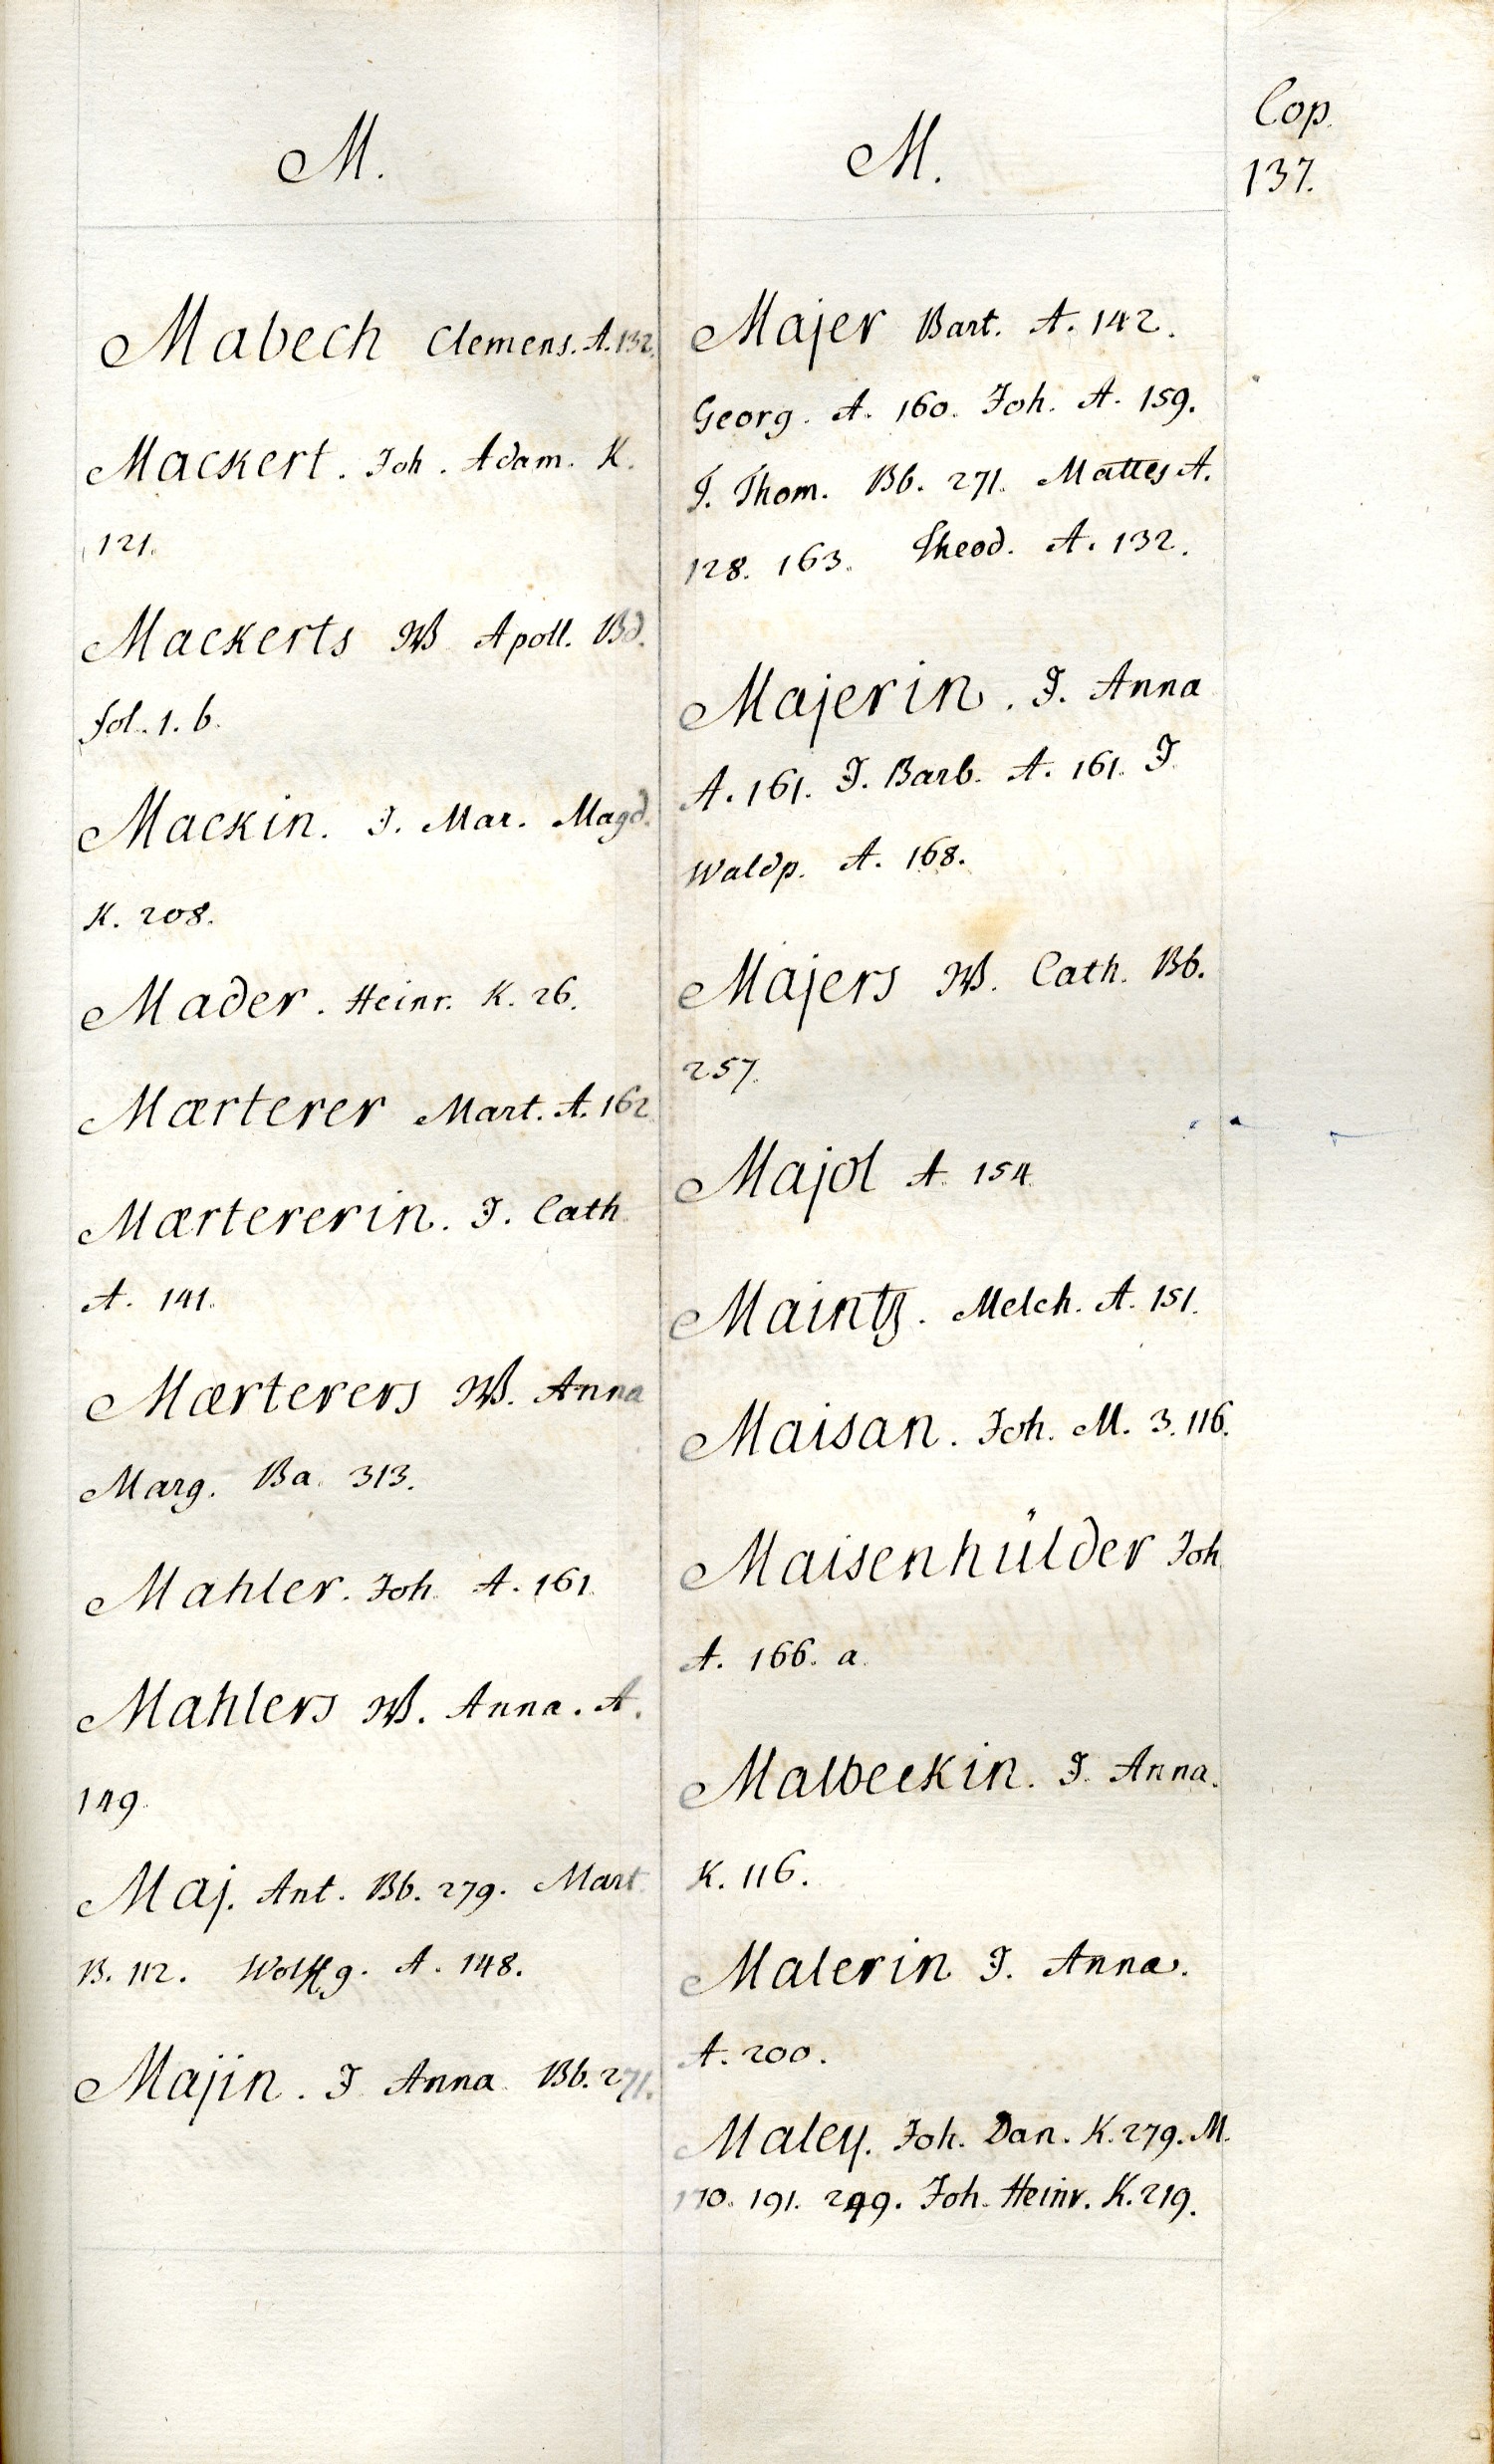 Cop.
137.
M.
Mabech Clemens. A. 132.
Mackert. Joh. Adam. K.
121.
Mackerts W Apoll. Bd.
fol. 1. b.
Mackin. J. Mar. Magd.
K. 208.
Mader. Heinr. K. 26.
Mærterer Mart. A. 162
Mærtererin. J. Cath.
A. 141.
Mærterers W. Anna
Marg. Ba. 313.
Mahler. Joh. A. 161.
Mahlers W. Anna. A.
149.
Maj. Ant. Bb. 279. Mart.
B. 112. Wolffg. A. 148.
Majin. J. Anna Bb. 271.
M.
Majer Bart. A. 142.
Georg. A. 160. Joh. A. 159.
J. Thom. Bb. 271. Mattes A.
128. 163. Theod. A. 132.
Majerin. J. Anna
A. 161. J. Barb. A. 161. J.
Waldp. A. 168.
Majers W. Cath. Bb.
257.
Majol A. 154.
Maintz. Melch. A. 151.
Maisan. Joh. M. 3. 116.
Maisenhülder Joh.
A. 166. a.
Malbeckin. J. Anna.
K. 116.
Malerin J. Anna.
A. 200.
Maley. Joh. Dan. K. 279. M.
170. 191. 299. Joh. Heinr. K. 219.